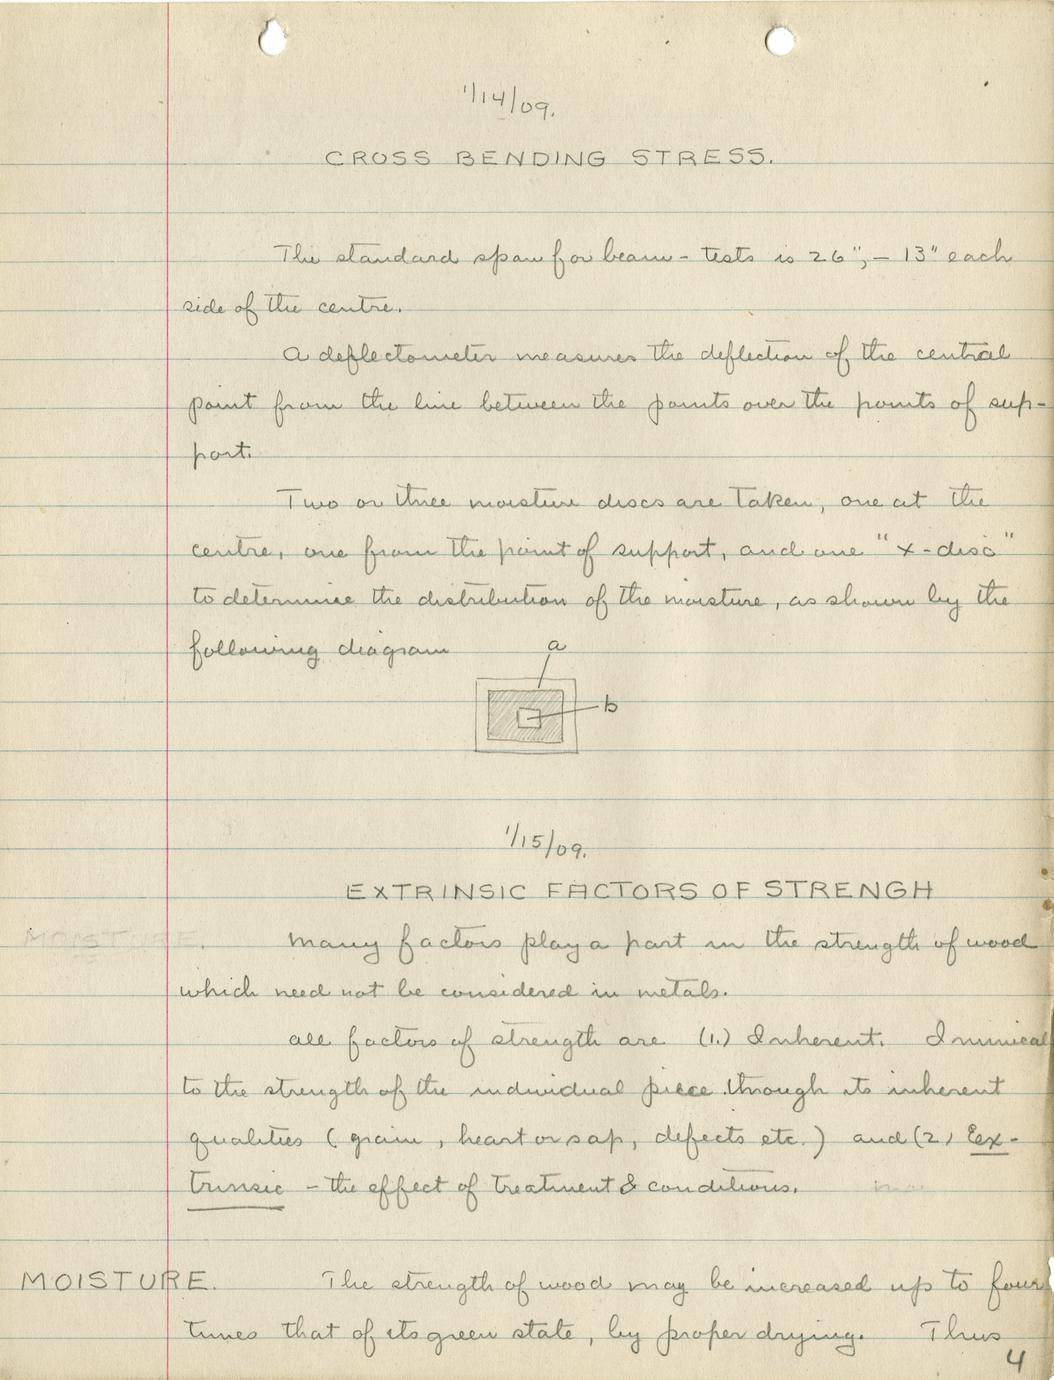 1/14/09.
CROSS BENDING STRESS.
The standard span for beam-tests is 26", – 13" each
side of the centre.
A deflectometer measures the deflection of the central
point from the line between the points over the points of sup-
port.
Two or three moisture discs are taken, one at the
centre, one from the point of support, and one "x-disc"
to determine the distribution of the moisture, as shown by the
following diagram
a
b
1/15/09.
EXTRINSIC FACTORS OF STRENGH
MOISTURE.
Many factors play a part in the strength of wood
which need not be considered in metals.
All factors of strength are (1.) Inherent. Inimical
to the strength of the individual piece through its inherent
qualities (grain, heart or sap, defects etc.) and (2) Ex-
trinsic – the effect of treatment & conditions.
MOISTURE. The strength of wood may be increased up to four
times that of its green state, by proper drying. Thus
4